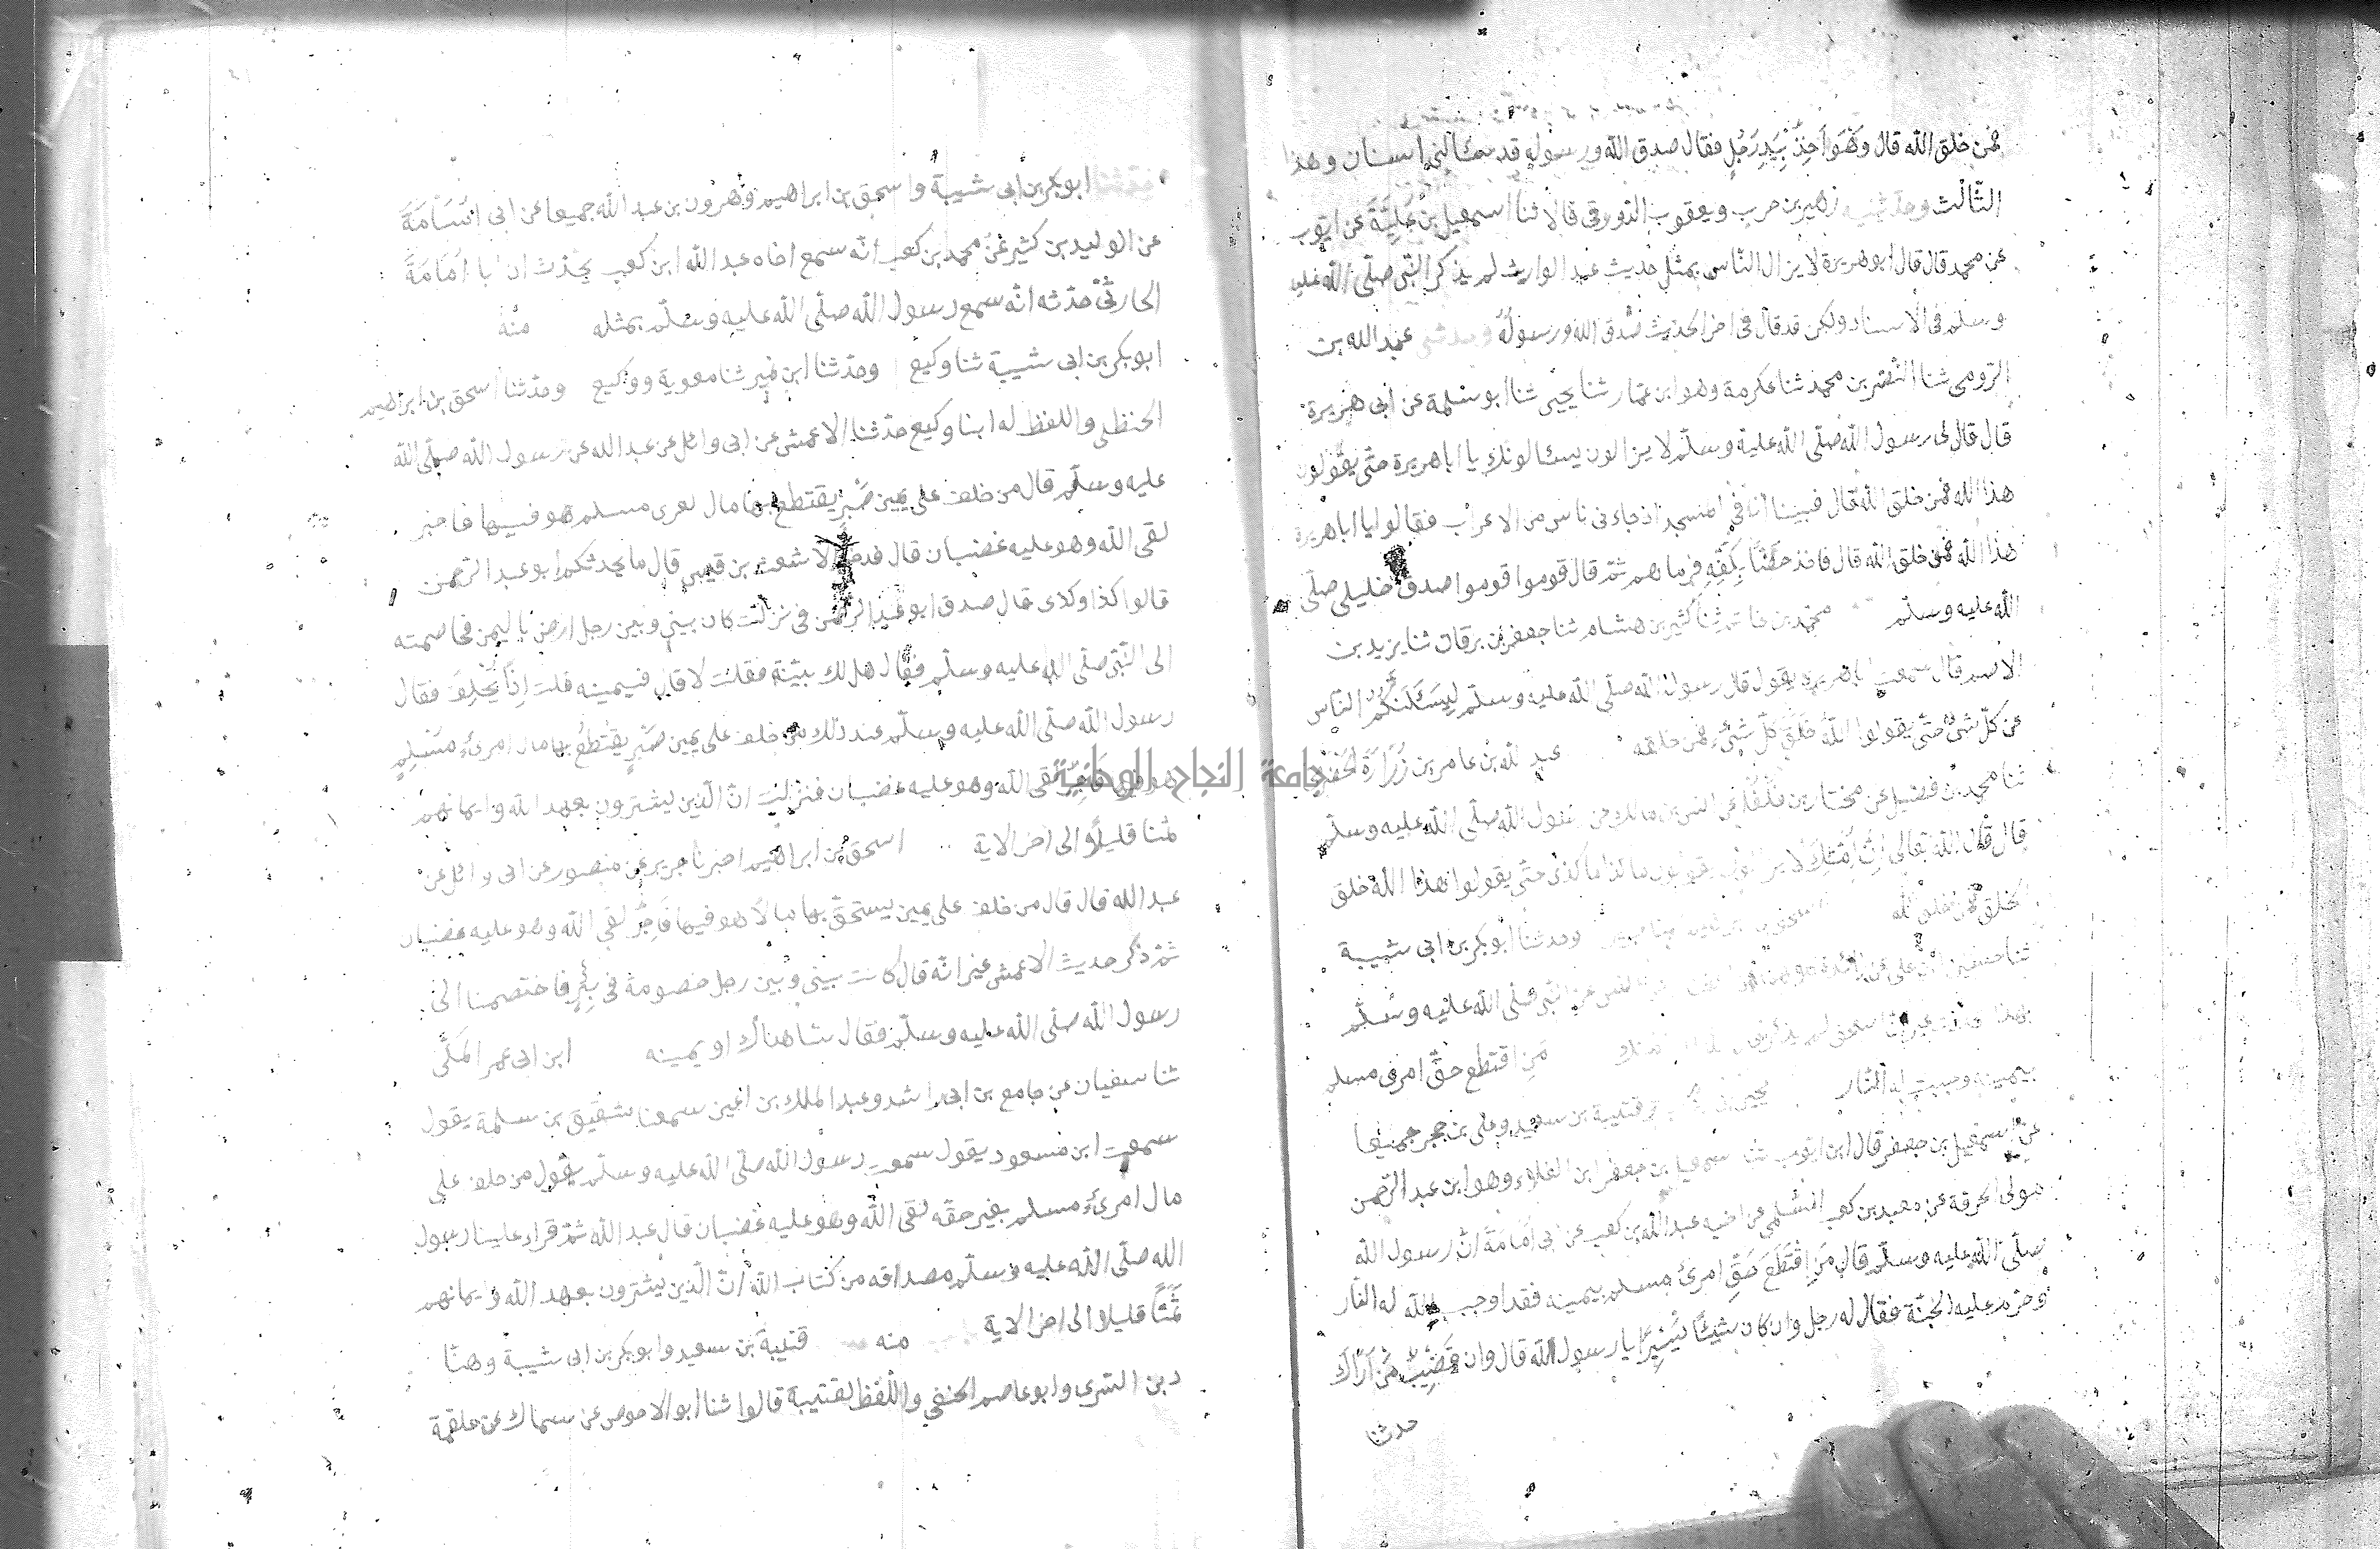 فمن خلق الله قال وَهُوَ آخِذٌ بِيَدِ رَجُلٍ فقال صدق الله ورسوله قد سئالني اسنان وهذا
الثالث وحدثنيه زهير بن حرب ويعقوب الدورقي قالا ثنا اسمعيل بن عُلَيَّةَ عن ايوب
عن محمد قال قال ابو هريرة لا يزال الناس بمثل حديث عبد الوارث لم يذكر النبي صلى الله عليه
وسلم في الاسناد ولكن قد قال في اخر الحديث صدق الله ورسوله وحدثني عبد الله بن
الرومي ثنا النضر بن محمد ثنا عكرمة وهو ابن عمار ثنا يحيى ثنا ابو سلمة عن ابي هريرة
قال قال لي رسول الله صلى الله عليه وسلم لا يزالون يسئالونك يا ابا هريرة حتى يقولون
هذا الله فمن خلق الله قال فبينا انا في المسجد اذ جاءني ناس من الاعراب فقالوا يا ابا هريرة
هذا الله فمن خلق الله قال فاخذ حَصًا بِكَفِّهِ فرماهم ثم قال قوموا قوموا صدق خليلي صلى
الله عليه وسلم محمد بن حاتم ثنا كثير بن هشام ثنا جعفر بن برقان ثنا يزيد بن
الاصم قال سمعت ابا هريرة يقول قال رسول الله صلى الله عليه وسلم لَيَسْئَلَنَّكُمُ الناس
عن كل شئ حتى يقولوا اللهُ خَلَقَ كلَّ شَئٍ فمن خلقه عبد الله بن عامر بن زُرَارَةَ الحَضْرَمي
ثنا محمد بن فضيل عن مختار بن فلفل عن انس بن مالك عن رسول الله صلى الله عليه وسلم
قال قال الله تعالى إِنَّ أُمَّتَكَ لا يزالون يقولون ما كذا ما كذا حتى يقولوا هذا الله خلق
الخلق فمن خلق الله اسحق بن وحدثنا ابو بكر بن ابي شيبة
ثنا حسين بن علي عن زائدة عن انس عن النبي صلى الله عليه وسلم
بهذا غير ان اسحق لم يذكر قال امتك مَنِ اقتطع حقَّ امرئ مسلم
بيمينه وجبت له النار يحيى بن وقتيبة بن سعيد وعلي بن حجر جميعا
عن اسمعيل بن جعفر قال ابن ايوب ثنا اسمعيل بن جعفر ابن العلاء وهو ابن عبد الرحمن
مولى الحرقة عن معبد بن كعب السلمي عن اخيه عبد الله بن كعب عن ابي اُمَامَةَ ان رسول الله
صلى الله عليه وسلم قال مَنِ اقْتَطَعَ حَقَّ امرئ مسلم بيمينه فقد اوجب الله له النار
وحرم عليه الجنة فقال له رجل وان كان شيئًا يَسِيرًا يا رسول الله قال وان قَضِيبٌ مِنْ أَرَاكٍ
حدثنا
حدثنا ابو بكر بن ابي شيبة واسحق بن ابراهيم وهرون بن عبد الله جميعا عن ابي اُسَامَةَ
عن الوليد بن كثير عن محمد بن كعب انه سمع اخاه عبد الله ابن كعب يحدث ان ابا اُمَامَةَ
الحارثي حدثه انه سمع رسول الله صلى الله عليه وسلم بمثله منه
ابو بكر بن ابي شيبة ثنا وكيع وحدثنا ابن نمير ثنا معوية ووكيع وحدثنا اسحق بن ابراهيم
الحنظلي واللفظ له ابنا وكيع حدثنا الاعمش عن ابي وائل عن عبد الله عن رسول الله صلى الله
عليه وسلم قال من حلف على يمين صَبْرٍ يقتطع بها مال امرئ مسلم هو فيها فاجر
لقي الله وهو عليه غضبان قال فدخل الاشعث بن قيس قال ما يحدثكم ابو عبد الرحمن
قالوا كذا وكذا قال صدق ابو عبد الرحمن في نزلت كان بيني وبين رجل ارض باليمن فخاصمته
الى النبي صلى الله عليه وسلم فقال هل لك بينة فقلت لا قال فيمينه قلت إِذًا يَحْلِفَ فقال
رسول الله صلى الله عليه وسلم عند ذلك من حلف على يمين صَبْرٍ يَقْتَطِعُ بها مال امرئٍ مُسْلِمٍ
هو فيها فَاجِرٌ لقي الله وهو عليه غضبان فنزلت ان الذين يشترون بعهد الله وايمانهم
ثمنا قليلًا الى اخر الاية اسحق بن ابراهيم اخبرنا جرير عن منصور عن ابي وائل عن
عبد الله قال قال من حلف على يمين يستحق بها مالا هو فيها فَاجِرٌ لقي الله وهو عليه غضبان
ثم ذكر حديث الاعمش غير انه قال كانت بيني وبين رجل خصومة في بِئْرٍ فاختصمنا الى
رسول الله صلى الله عليه وسلم فقال شاهداك او يمينه ابن ابي عمر المَكِّيُّ
ثنا سفيان عن جامع بن ابي راشد وعبد الملك بن اعين سمعنا شقيق بن سلمة يقول
سمعت ابن مسعود يقول سمعت رسول الله صلى الله عليه وسلم يقول من حلف على
مال امرئٍ مسلم بغير حقه لقي الله وهو عليه غضبان قال عبد الله ثم قراء علينا رسول
الله صلى الله عليه وسلم مصداقه من كتاب الله ان الذين يشترون بعهد الله وايمانهم
ثَمَنًا قليلا الى اخر الاية منه قتيبة بن سعيد وابو بكر بن ابي شيبة وهنا
د بن السري وابو عاصم الحنفي واللفظ لقتيبة قالوا ثنا ابو الاحوص عن سماك عن علقمة
جامعة النجاح الوطنية